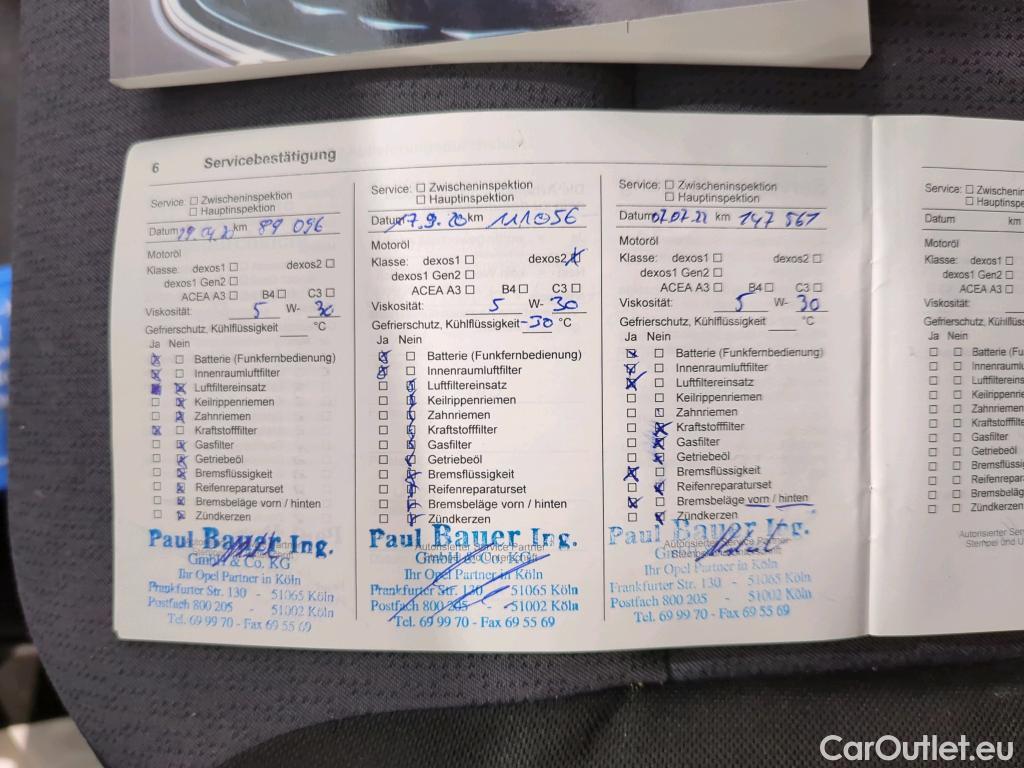 6 Servicebestätigung
Service: ☐ Zwischeninspektion
☐ Hauptinspektion
Datum 29.04.20 km 89 096
Motoröl
Klasse: dexos1 ☐ dexos2 ☐
dexos1 Gen2 ☐
ACEA A3 ☐ B4 ☐ C3 ☐
Viskosität: 5 W- 30
Gefrierschutz, Kühlflüssigkeit °C
Ja Nein
Batterie (Funkfernbedienung)
Innenraumluftfilter
Luftfiltereinsatz
Keilrippenriemen
Zahnriemen
Kraftstofffilter
Gasfilter
Getriebeöl
Bremsflüssigkeit
Reifenreparaturset
Bremsbeläge vorn / hinten
Zündkerzen
Paul Bauer Ing.
GmbH & Co. KG
Ihr Opel Partner in Köln
Frankfurter Str. 130 - 51065 Köln
Postfach 800 205 - 51002 Köln
Tel. 69 99 70 - Fax 69 55 69
Service: ☐ Zwischeninspektion
☐ Hauptinspektion
Datum 17.9.20 km 111056
Motoröl
Klasse: dexos1 ☐ dexos2 ☒
dexos1 Gen2 ☐
ACEA A3 ☐ B4 ☐ C3 ☐
Viskosität: 5 W- 30
Gefrierschutz, Kühlflüssigkeit -30 °C
Ja Nein
Batterie (Funkfernbedienung)
Innenraumluftfilter
Luftfiltereinsatz
Keilrippenriemen
Zahnriemen
Kraftstofffilter
Gasfilter
Getriebeöl
Bremsflüssigkeit
Reifenreparaturset
Bremsbeläge vorn / hinten
Zündkerzen
Autorisierter Service Partner
Paul Bauer Ing.
GmbH & Co. KG
Ihr Opel Partner in Köln
Frankfurter Str. 130 - 51065 Köln
Postfach 800 205 - 51002 Köln
Tel. 69 99 70 - Fax 69 55 69
Service: ☐ Zwischeninspektion
☐ Hauptinspektion
Datum 07.07.22 km 147 561
Motoröl
Klasse: dexos1 ☐ dexos2 ☐
dexos1 Gen2 ☐
ACEA A3 ☐ B4 ☐ C3 ☐
Viskosität: 5 W- 30
Gefrierschutz, Kühlflüssigkeit °C
Ja Nein
Batterie (Funkfernbedienung)
Innenraumluftfilter
Luftfiltereinsatz
Keilrippenriemen
Zahnriemen
Kraftstofffilter
Gasfilter
Getriebeöl
Bremsflüssigkeit
Reifenreparaturset
Bremsbeläge vorn / hinten
Zündkerzen
Autorisierter Service Partner
Paul Bauer Ing.
Ihr Opel Partner in Köln
Frankfurter Str. 130 - 51065 Köln
Postfach 800 205 - 51002 Köln
Tel. 69 99 70 - Fax 69 55 69
Service: ☐
☐ Hauptinspektion
Datum km
Motoröl
Klasse: dexos1 ☐
dexos1 Gen2 ☐
ACEA A3 ☐
Viskosität:
Gefrierschutz,
Ja Nein
Batterie
Innenraumluftfilter
Luftfiltereinsatz
Zahnriemen
Kraftstofffilter
Gasfilter
Getriebeöl
Bremsflüssigkeit
Bremsbeläge
Zündkerzen
Autorisierter Service
CarOutlet.eu